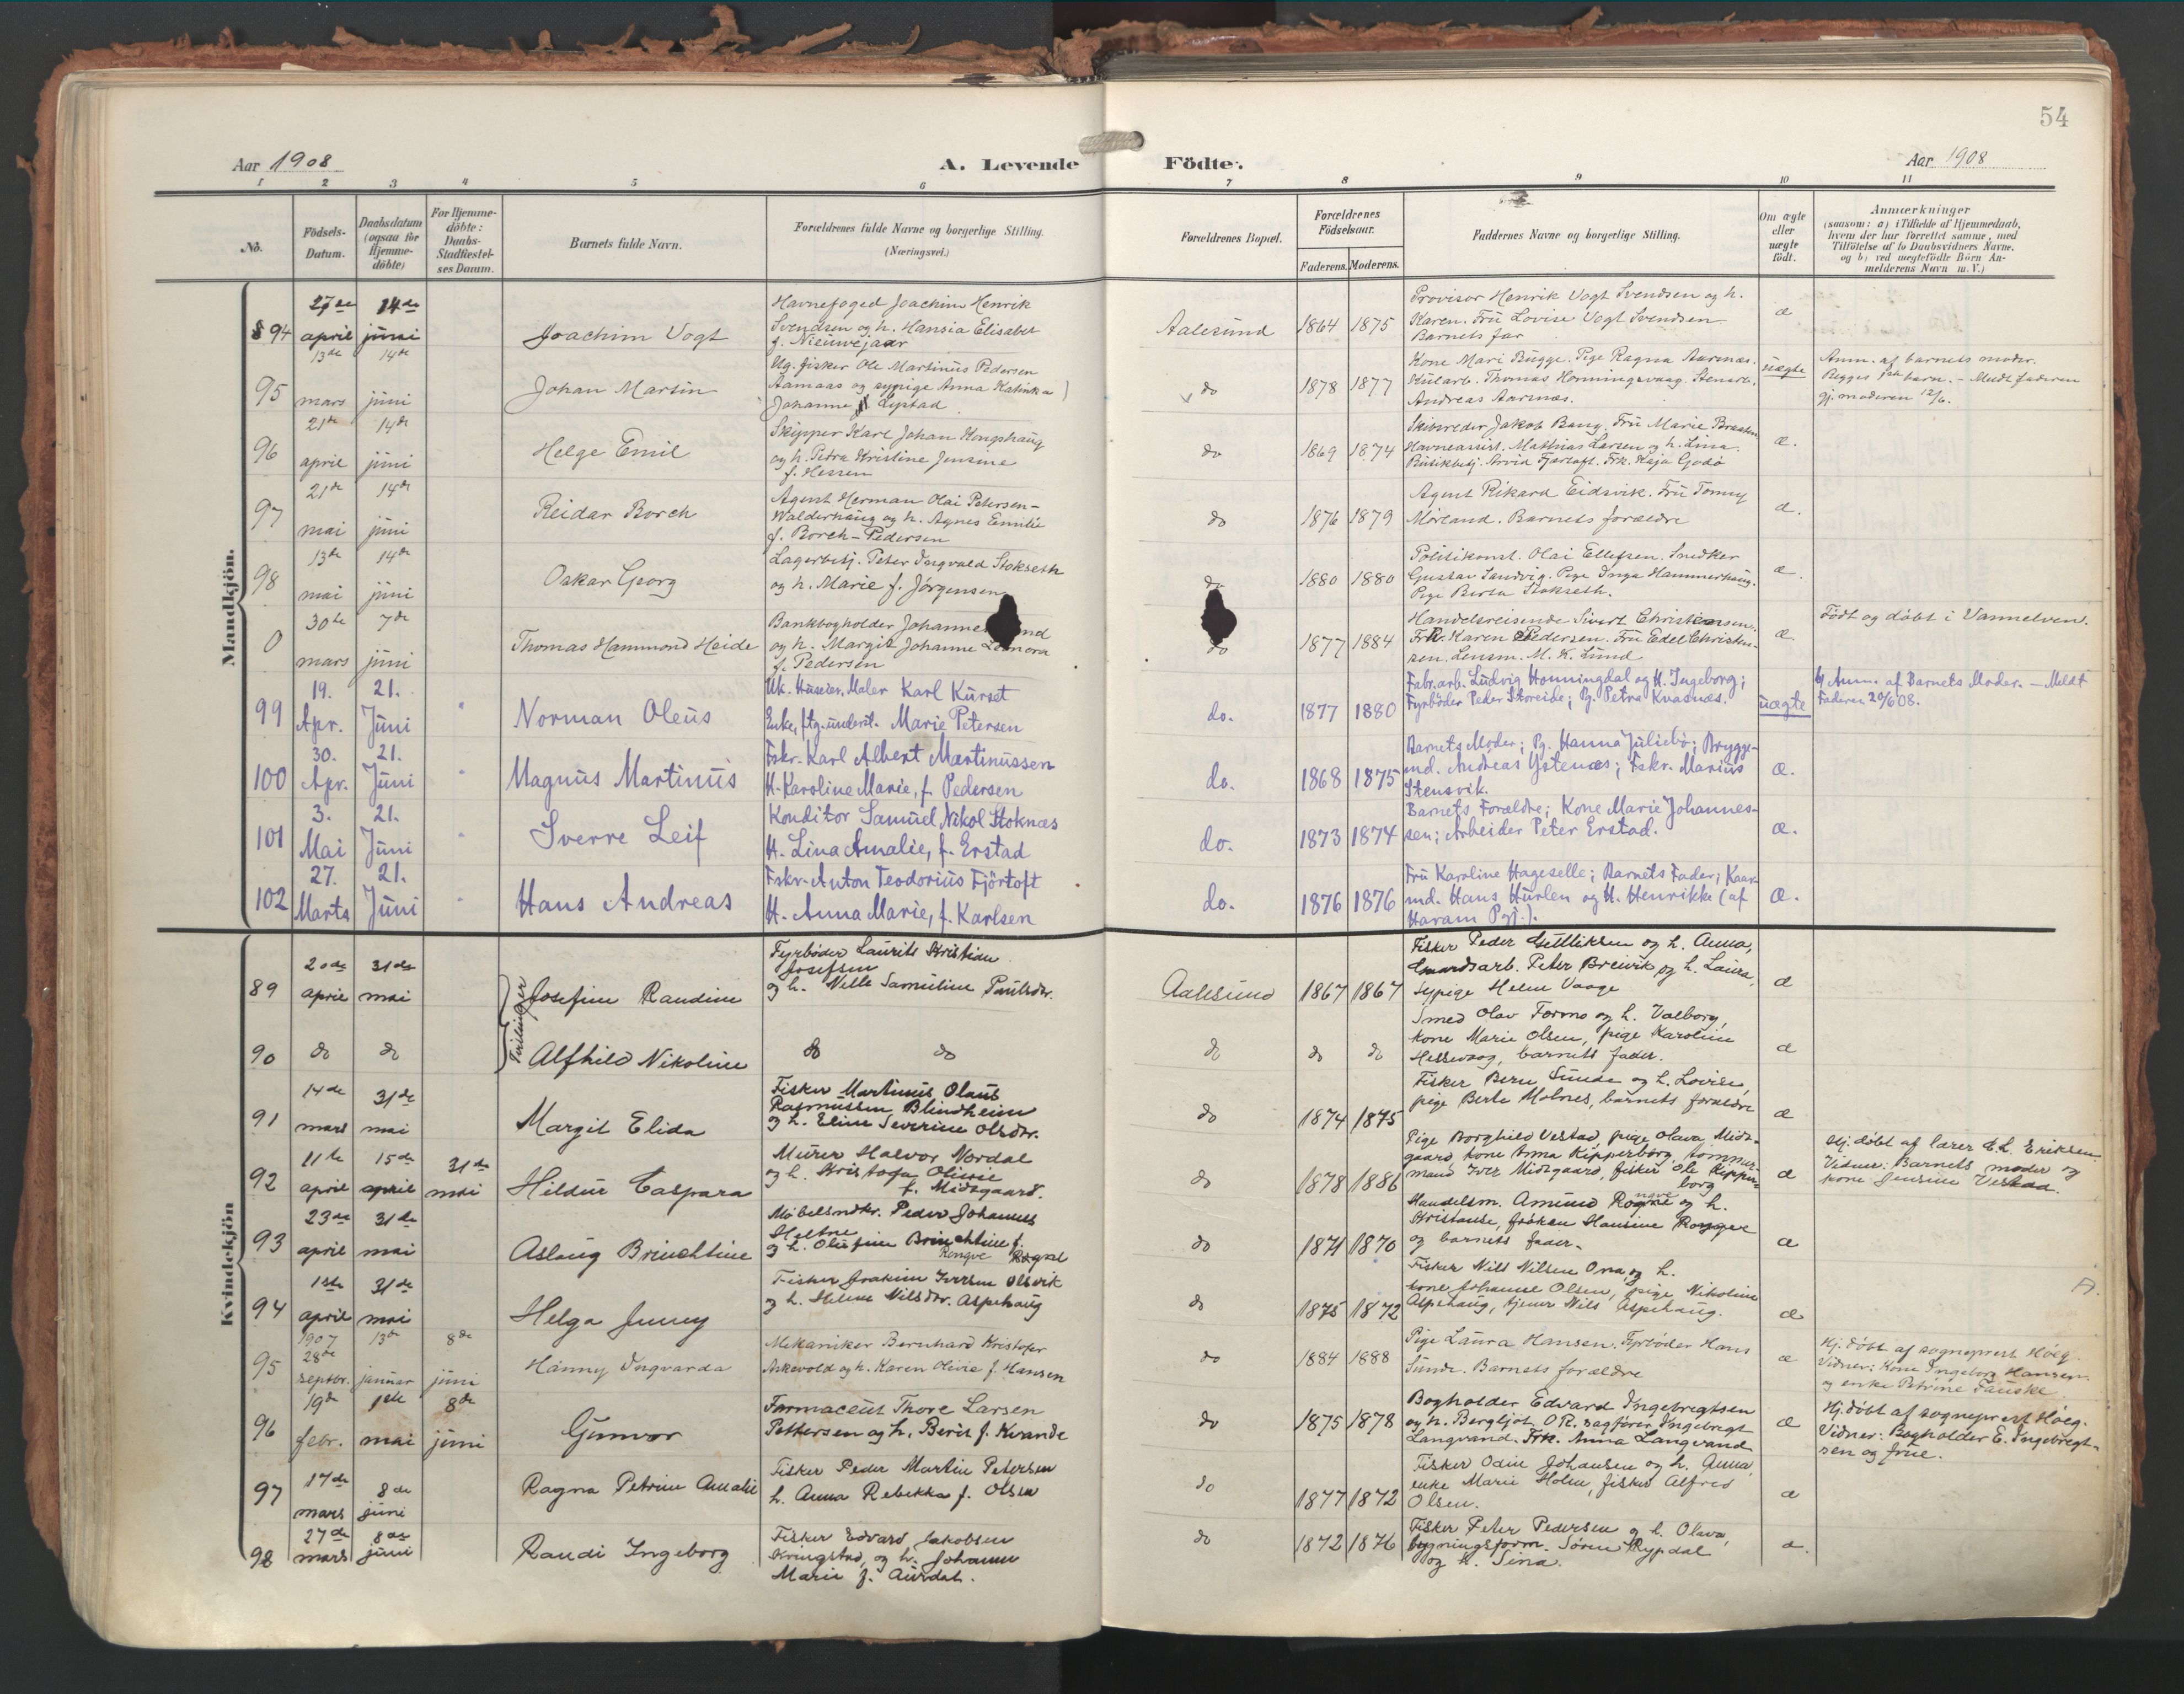 54
Aar 1908
A. Levende Födte.
Aar 1908
1 2 3 4 5 6 7 8 9 10 11
No.
Födsels-Datum.
Daabsdatum (ogsaa for Hjemme-döbte)
For Hjemme-döbte: Daabs-Stadfæstel-ses Datum.
Barnets fulde Navn.
Forældrenes fulde Navne og borgerlige Stilling. (Næringsvei.)
Forældrenes Bopæl.
Forældrenes Födselsaar.
Faderens. Moderens.
Faddernes Navne og borgerlige Stilling.
Om ægte eller uægte födt.
Anmærkninger
(saasom: a) i Tilfælde af Hjemmedaab,
hvem der har forrettet samme, med
Tilföielse af to Daabsvidners Navne,
og b) ved uægtefödte Börn An-
melderens Navn m. V.)
Mandkjön.
94 27de april 14de juni
Joachim Vogt
Havnefoged Joachim Henrik
Svendsen og h. Hansia Elisabet
f. Nieuwejaar
Aalesund 1864 1875
Provisor Henrik Vogt Svendsen og h.
Karen. Fru Lovise Vogt Svendsen
Barnets far
æ
95 13de mars 14de juni
Johan Martin
Ug. fisker Ole Martinus Pedersen
Aamaas og sypige Anna Katinka
Johanne Lystad
do 1878 1877
Kone Mari Bugge. Pige Ragna Aarnæs.
Kularb. Thomas Honningsvaag. Stenarb.
Andreas Aarsnæs.
uægte
Anm. af barnets moder.
Begges 1ste barn. – Meldt faderen
gj. moderen 12/6.
96 21de april 14de juni
Helge Emil
Skipper Karl Johan Kongshaug
og h. Petra Kristine Jensine
f. Hessen
do 1869 1874
Skibsreder Jakob Bang. Fru Marie Braaten
Havneassist. Mathias Larsen og h. Lina.
Busikbesj. Arvid Fjærtoft. Frk. Kaja Godø
æ.
97 21de mai 14de juni
Reidar Borch
Agent Herman Olai Petersen-
Walderhaug og h. Agnes Emilie
f. Borch-Pedersen
do 1876 1879
Agent Rikard Eidsvik. Fru Tonny
Mørland. Barnets forældre
æ.
98 13de mai 14de juni
Oskar Georg
Lagerbesj. Peter Ingvald Stokseth
og h. Marie f. Jørgensen
do 1880 1880
Politikonst. Olai Ellefsen. Snedker
Gustav Sandvig. Pige Inga Hammerhaug.
Pige Berta Stokseth.
æ.
0 30te mars 7de juni
Thomas Hammond Heide
Bankbogholder Johannes
og h. Margit Johanne Leonora
f. Pedersen
do 1877 1884
Handelsreisende Sivert Christensen.
Frk. Karen Pedersen. Fru Edel Christen-
sen. Lensm. M. K. Lund
æ.
Födt og döbt i Vannelven.
99 19. Apr. 21. Juni
Norman Oleus
Uk. Huseier, Maler Karl Kurset
Enke, ftg. underst. Marie Petersen
do. 1877 1880
Fabr.arb. Ludvig Honningdal og H. Ingeborg;
Fyrböder Peder Storeide; Pg. Petra Kvasnæs.
uægte
b) Anm. af Barnets Moder. – Meldt
Faderen 20/6 08.
100 30. Apr. 21. Juni
Magnus Martinus
Fskr. Karl Albert Martinussen
H. Karoline Marie, f. Pedersen
do. 1868 1875
Barnets Moder; Pg. Hanna Juliebö; Brygge-
md. Andreas Ystenes; Fskr. Marius
Stensvik.
æ.
101 3. Mai 21. Juni
Sverre Leif
Konditor Samuel Nikol. Stoknæs
H. Lina Amalie, f. Erstad
do. 1873 1874
Barnets Forældre; Kone Marie Johannes-
sen; Arbeider Peter Erstad.
æ.
102 27. Marts 21. Juni
Hans Andreas
Fskr. Anton Teodorius Fjörtoft
H. Anna Marie, f. Karlsen
do. 1876 1876
Fru Karoline Hageselle; Barnets Fader; Kaar-
md. Hans Hurlen og H. Henrikke (af
Haram Pgj.).
æ.
Kvindekjön
89 20de april 31de mai
Tvillinger
Josefine Randine
Fyrbøder Laurits Kristian
Josefsen
og h. Nelle Samueline Paulsdr.
Aalesund 1867 1867
Fisker Peder Gittliksen og h. Anna,
Gaardsarb. Peter Breivik og h. Laura,
Sypige Helen Vaage
æ
90 do do
Alfhild Nikoline
do do
do do do
Smed Olav Formo og h. Valborg,
kone Marie Olsen, pige Karoline
Hessevaag, barnets fader.
æ
91 14de mars 31de mai
Margit Elida
Fisker Martinus Olaus
Rasmussen Blindheim
og h. Eline Severine Olsdr.
do 1874 1875
Fisker Bern Sunde og h. Lovise,
pige Berte Molnes, barnets forældre
æ
92 11te april 15de april 31de mai
Hildur Caspara
Murer Halvor Nordal
og h. Kristofa Olivie
f. Midsgaard.
do 1878 1886
Pige Borghild Vestad, pige Olava Mids-
gaard, kone Anna Kipperborg, tømmer-
mand Iver Midsgaard, fisker Ole Kipper-
borg
æ
Hj. døbt af lærer E. L. Eriksen
Vidner: Barnets moder og
kone Jensine Vestad.
93 23de april 31de mai
Aslaug Brinchtine
Møbelsndkr. Peder Johannes
Heltne
og h. Olufine Brinchtine f.
Rongve
do 1871 1870
Handelsm. Amund Rogne og h.
Kristanse, frøken Hansine Rongve
og barnets fader.
æ
94 1ste april 31de mai
Helga Jenny
Fisker Joakim Iversen Olsvik
og h. Helene Nilsdr. Aspehaug
do 1875 1872
Fisker Nils Nilsen Ona og h.
kone Johanne Olsen, pige Nikoline
Aspehaug, tjener Nils Aspehaug.
æ
95 1907 28de septbr. 13de januar 8de juni
Hanny Ingvarda
Mekaniker Bernhard Kristofer
Askevold og h. Karen Olivie f. Hansen
do 1884 1888
Pige Laura Hansen. Fyrbøder Hans
Sunde. Barnets forældre
æ
Hj. døbt af sogneprest Høeg.
Vidner: Kone Ingeborg Hansen
og enke Petrine Fauske
96 19de febr. 1ste mai 8de juni
Gunvor
Farmaceut Thore Larsen
Pettersen og h. Berit f. Kvande
do 1875 1878
Bogholder Edvard Ingebregtsen
og h. Bergljot. OR. sagfører Ingebregt
Langvand. Frk. Anna Langvand
æ
Hj. døbt af sogneprest Høeg.
Vidner: Bogholder E. Ingebregt-
sen og frue.
97 17de mars 8de juni
Ragna Petrine Amalie
Fisker Peder Martin Petersen
h. Anna Rebekka f. Olsen
do 1877 1872
Fisker Odin Johansen og h. Anna,
enke Marie Holm, fisker Alfred
Olsen.
æ
98 27de mars 8de juni
Randi Ingeborg
Fisker Edvard Jakobsen
Kringstad, og h. Johanne
Marie f. Aursdal.
do 1872 1876
Fisker Peter Pedersen og h. Olava,
bygningsform. Søren Rypdal
og h. Sina.
æ.